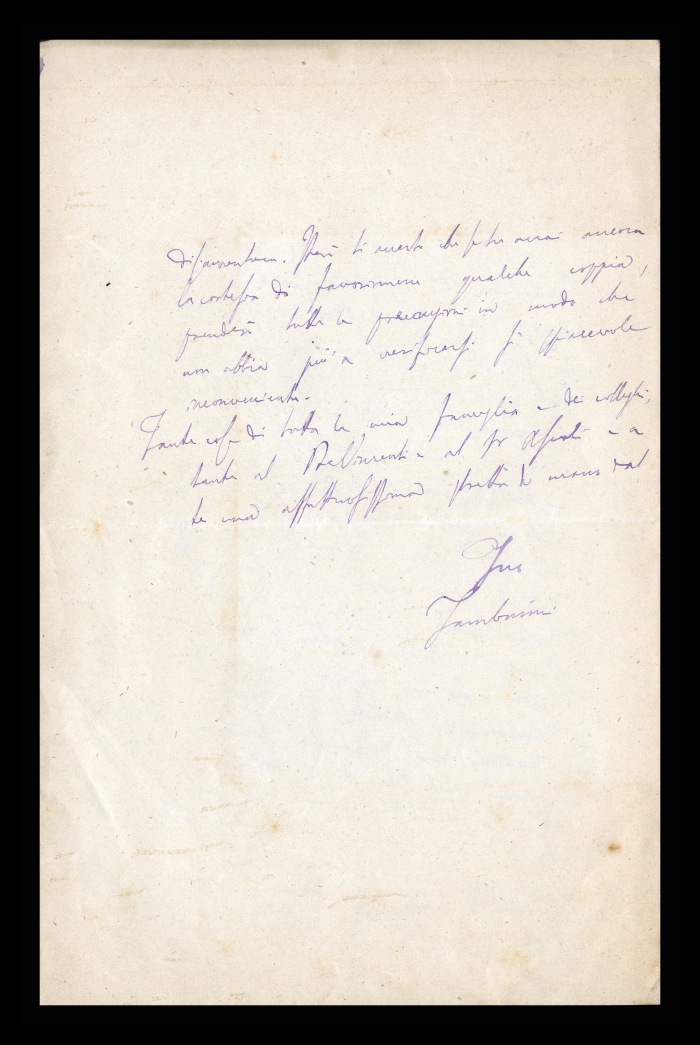 disavventura. Però ti accerto che se tu avrai ancora
la cortesia di favorirmene qualche coppia,
prenderò tutte le precauzioni in modo che
non abbia più a verificarsi sì spiacevole
inconveniente.
Tante cose di tutta la mia famiglia e dei colleghi,
tante al e al Dr e a
te una affettuosissima stretta di mano dal
Tuo
Tamburini